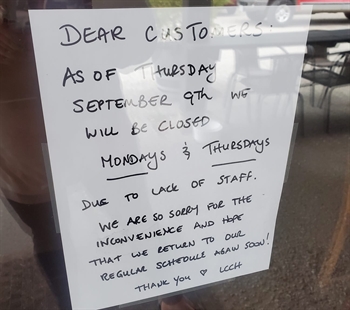 DEAR CUSTOMERS.
AS OF THURSDAY
SEPTEMBER 9th WE
WILL BE CLOSED
MONDAYS & THURSDAYS
DUE TO LACK OF STAFF.
WE ARE SO SORRY FOR THE
INCONVENIENCE AND HOPE
THAT WE RETURN TO OUR
REGULAR SCHEDULE AGAIN SOON!
THANK YOU ♡ LCCH